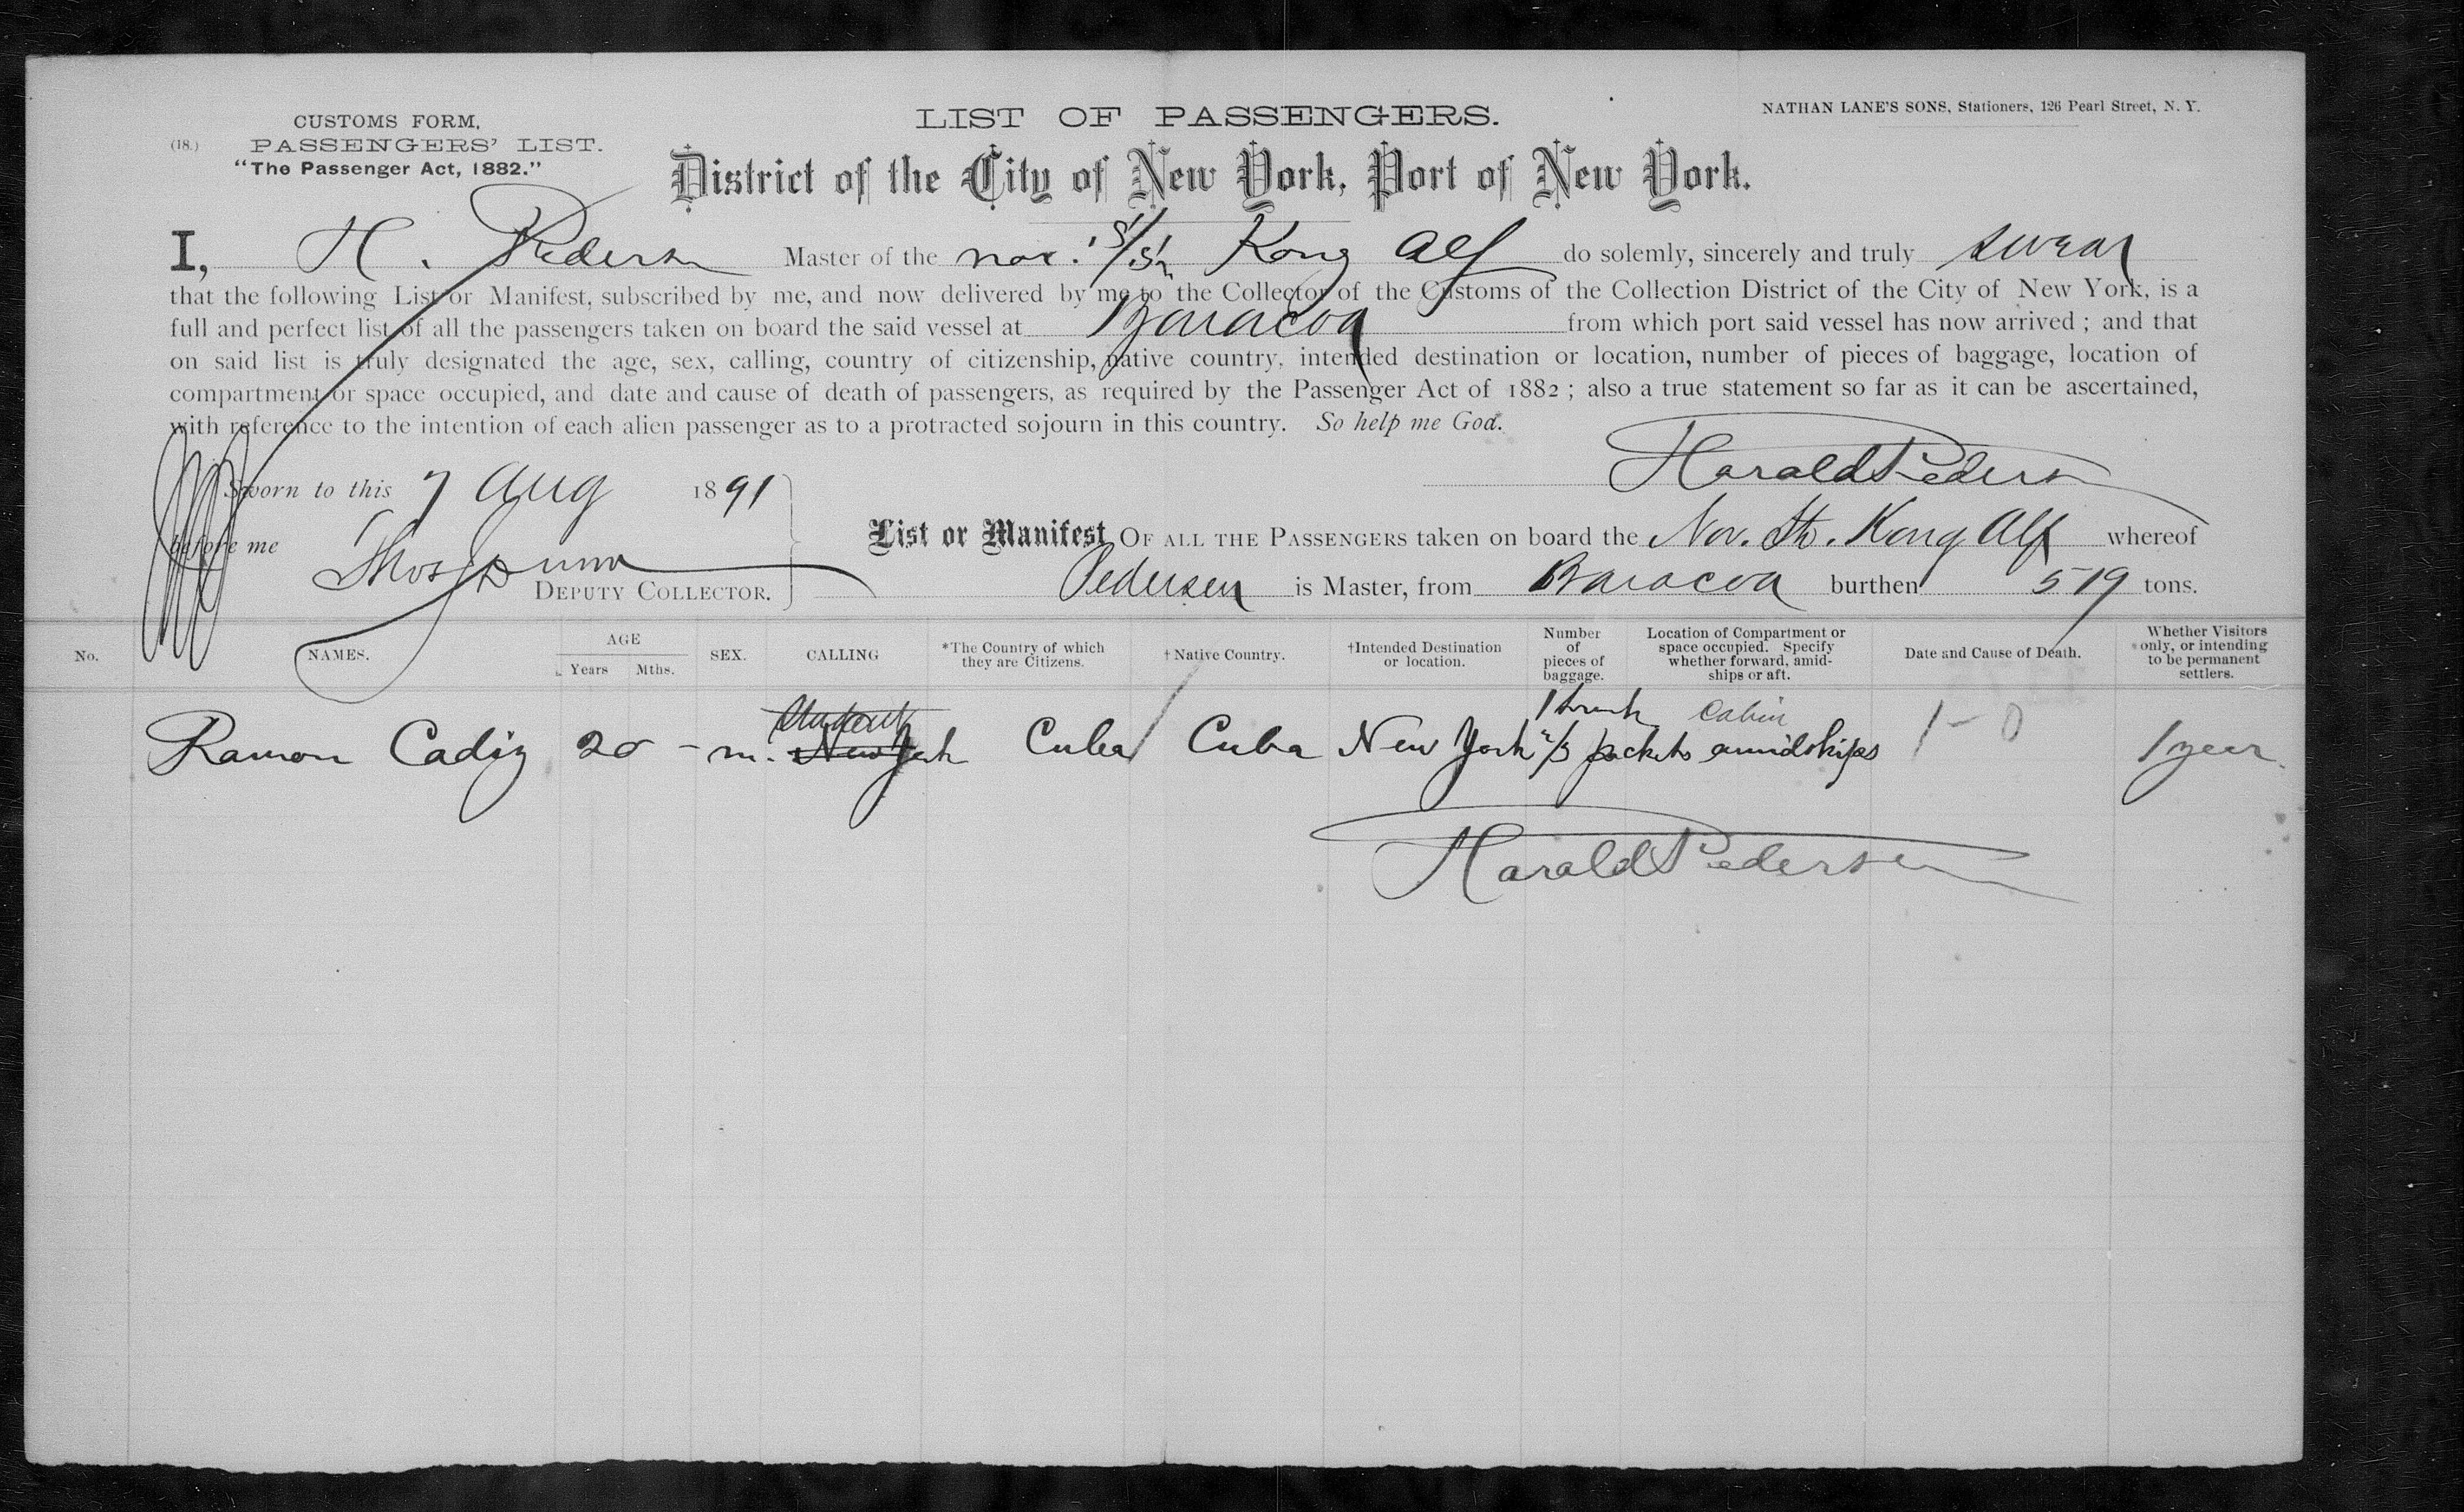 CUSTOMS FORM,
(18.) PASSENGERS' LIST.
"The Passenger Act, 1882."
LIST OF PASSENGERS.
NATHAN LANE'S SONS, Stationers, 126 Pearl Street, N. Y.
District of the City of New York, Port of New York.
I, H. Pedersen Master of the nor. S/S Kong Alf do solemly, sincerely and truly swear
that the following List or Manifest, subscribed by me, and now delivered by me to the Collector of the Customs of the Collection District of the City of New York, is a
full and perfect list of all the passengers taken on board the said vessel at Baracoa from which port said vessel has now arrived ; and that
on said list is truly designated the age, sex, calling, country of citizenship, native country, intended destination or location, number of pieces of baggage, location of
compartment or space occupied, and date and cause of death of passengers, as required by the Passenger Act of 1882 ; also a true statement so far as it can be ascertained,
with reference to the intention of each alien passenger as to a protracted sojourn in this country. So help me God.
Harald Pedersen
Sworn to this 7 Aug 1891
before me Thos Dunn
DEPUTY COLLECTOR.
List or Manifest OF ALL THE PASSENGERS taken on board the Nov. Str. Kong Alf whereof
Pedersen is Master, from Baracoa burthen 519 tons.
No. NAMES. AGE Years Mths. SEX. CALLING *The Country of which they are Citizens. †Native Country. †Intended Destination or location. Number of pieces of baggage. Location of Compartment or space occupied. Specify whether forward, amid-ships or aft. Date and Cause of Death. Whether Visitors only, or intending to be permanent settlers.
Student 1 trunk Cabin
Ramon Cadiz 20 - m. New York Cuba Cuba New York 3 packets amidships 1-0 1 year
Harald Pedersen